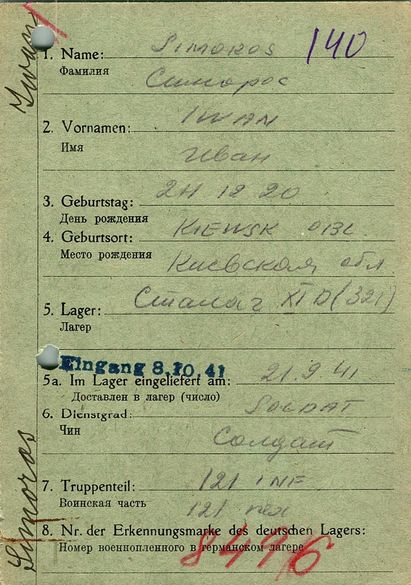 Iwan
140
1. Name: SIMOROS
Фамилия
Симорос
2. Vornamen: IWAN
Имя
Иван
3. Geburtstag: 24 12 20
День рождения
4. Geburtsort: KIEWSK OBL
Место рождения
Киевская обл
5. Lager: Сталаг XI D (321)
Лагер
Eingang 8.10.41
5a. Im Lager eingeliefert am: 21.9.41
Доставлен в лагер (число)
6. Dienstgrad: SOLDAT
Чин
Солдат
7. Truppenteil: 121 INF
Воинская часть
121 пех
8. Nr. der Erkennungsmarke des deutschen Lagers:
Номер военнопленного в германском лагере
8416
Simoros